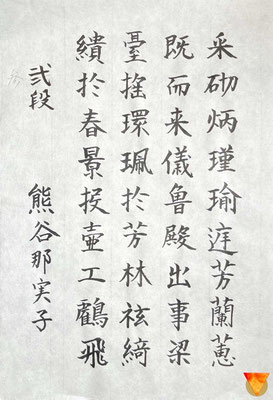 采砌炳瑾瑜遅芳蘭蕙
既而来儀魯殿出事梁
臺揺環珮於芳林袨綺
繢於春景投壷工鶴飛
弐段 熊谷那実子